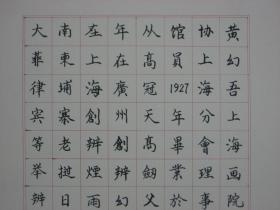 黄幻吾上海画院
协上海分會理事
馆員1927年畢業於
从髙冠天髙劔父
年在廣州創辦幻
在上海創辦煙雨
南柬埔寨老撾日
大菲律宾等举辦